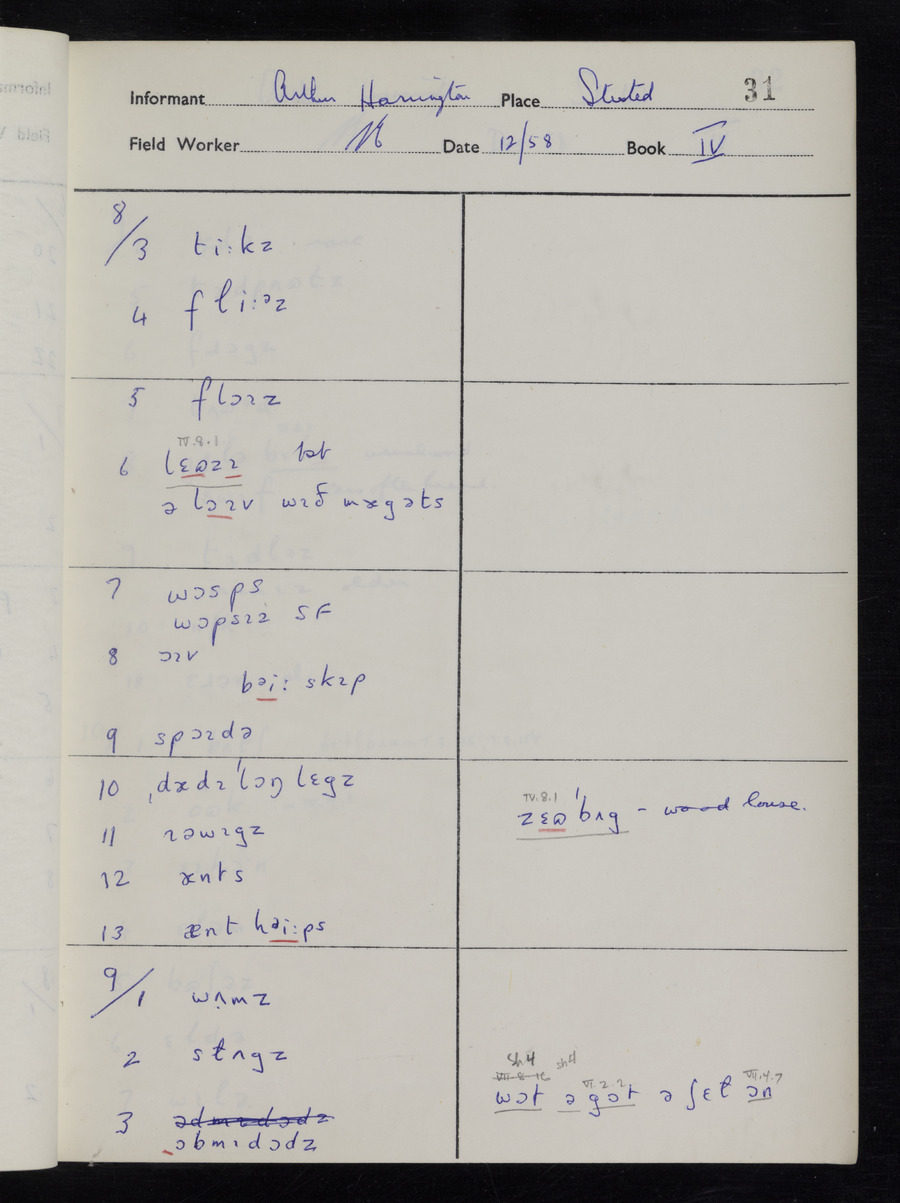 Informant Arthur Harrington Place Stusted 31
Field Worker Date 12/58 Book IV
8/3 ti:kz
4 fli:ᵊz
5 flɔɪz
IV.8.1
6 lɛɷzɪ
ə lɔɪv wɪð mægəts
7 wɔsps
wɔpsɪz SF
8 ɔɪv
bəi: skɪp
9 spɔɪdə
10 ˌdædɪ ˈlɔŋ lɛgz
IV.8.1
zɛɷ ˈbʌg - wood louse.
11 ɪəwɪgz
12 ænts
13 ænt həi:ps
9/1 wʌmz
2 stʌgz
Sh4 sh4
VI.2.2 VII.4.7
wɔt ə gɔt ə ʃɛt ɔn
3 ədmɪdɔdz
ɔbmɪdɔdz